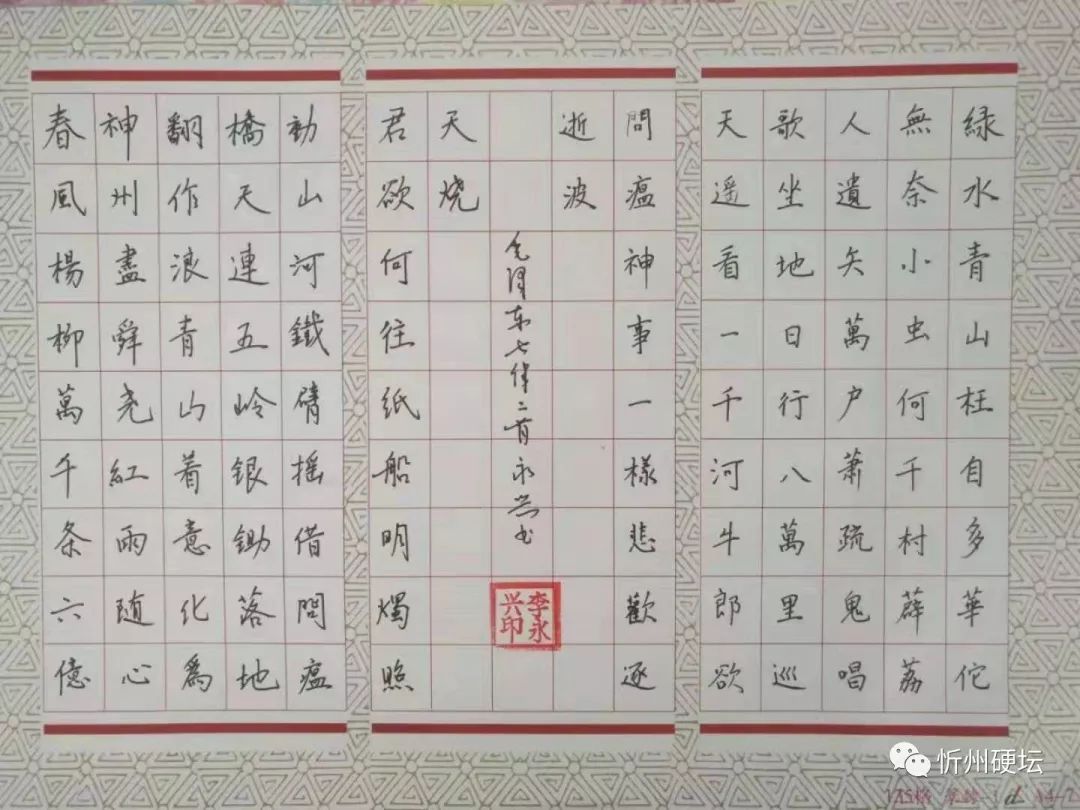 緑水青山枉自多華佗
無奈小虫何千村薜荔
人遺矢萬户蕭疏鬼唱
歌坐地日行八萬里巡
天遥看一千河牛郎欲
問瘟神事一樣悲歡逐
逝波
春風楊柳萬千条六億
神州盡舜尧紅雨随心
翻作浪青山着意化爲
橋天連五岭銀鋤落地
動山河鐵臂摇借問瘟
君欲何往纸船明燭照
天烧
毛泽东七律二首永兴书
李永兴印
忻州硬坛
175格